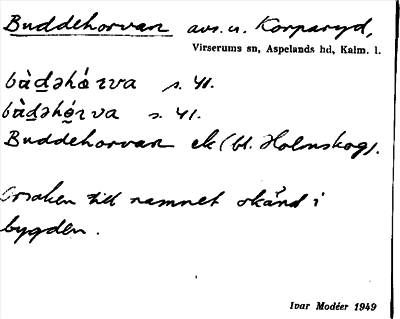 Buddehorvan avs. u. Korparyd,
Virserums sn, Aspelands hd, Kalm. l.
bùd̲əhó̲rva s. 41.
bùd̲əhó̤rva s. 41.
Buddehorvan ek (bl. Holmskog).
Orsaken till namnet okänd i
bygden.
Ivar Modéer 1949